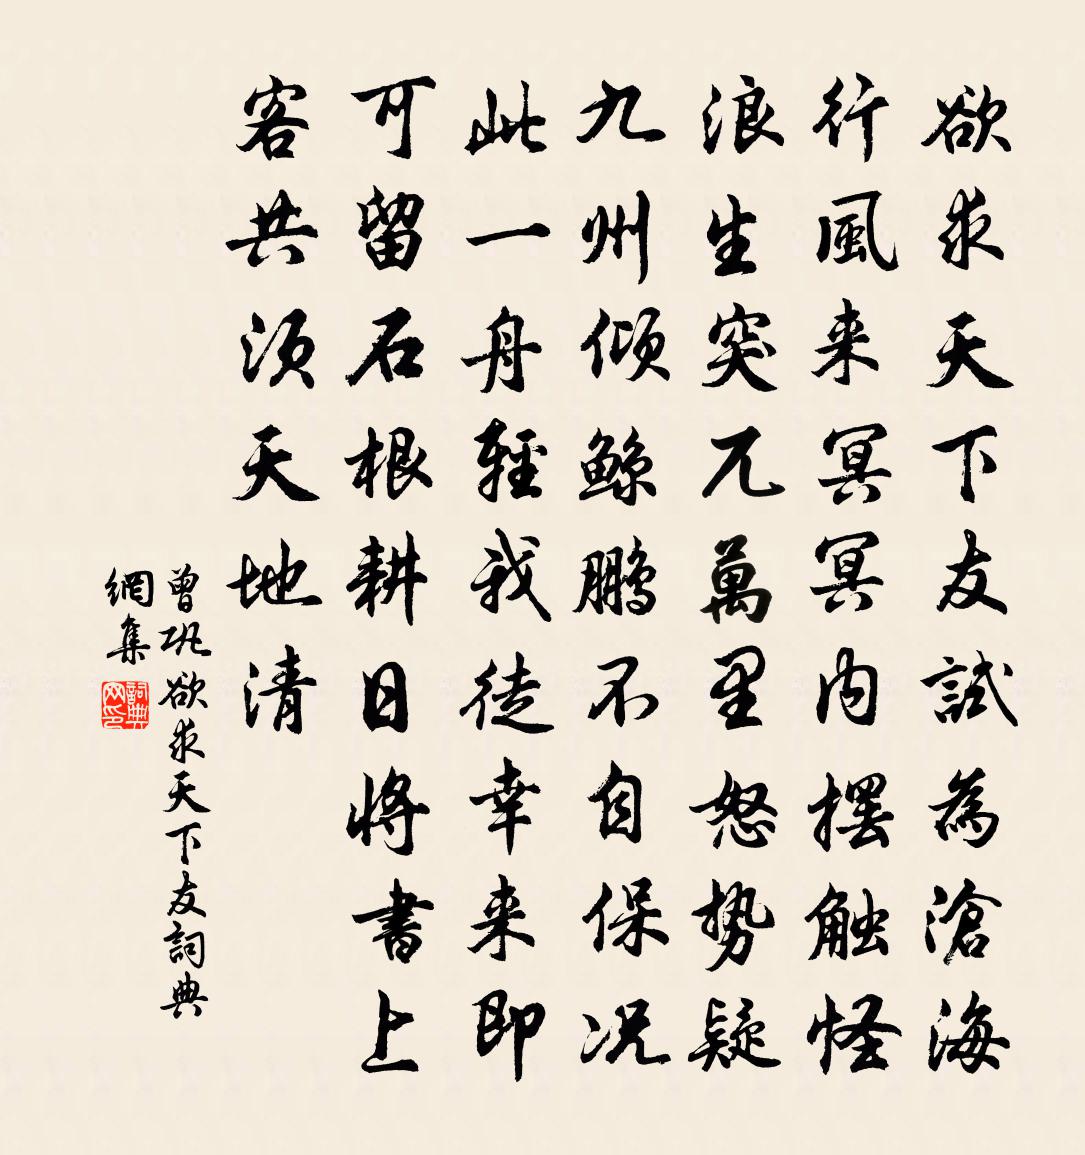 欲求天下友試為滄海
行風来冥冥内擺触怪
浪生突兀萬里怒勢疑
九州傾鯨鵬不自保況
此一舟輕我徒幸来即
可留石根耕日將書上
客共須天地清
曾巩欲求天下友詞典
網集
詞典
网印